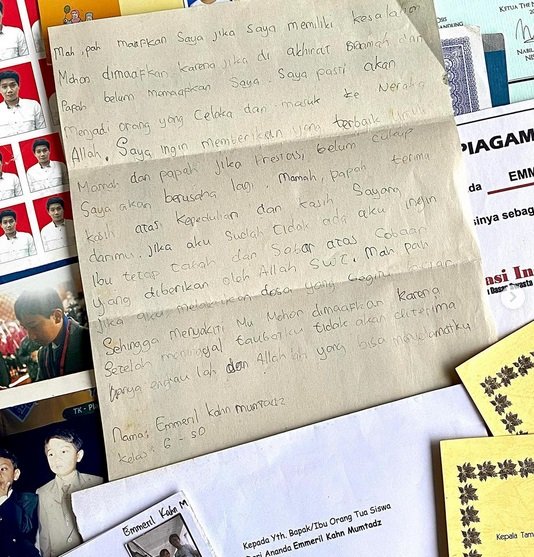 Mah, pah maafkan Saya jika Saya memiliki kesalahan
Mohon dimaafkan karena jika di akhirat Mamah dan
Papah belum Memaafkan Saya. Saya pasti akan
Menjadi orang yang Celaka dan masuk ke Neraka
Allah. Saya ingin memberikan yang terbaik untuk
Mamah dan papah jika Prestasi belum cukup
Saya akan berusaha lagi. Mamah, papah terima
kasih atas kepedulian dan kasih Sayang
danmu. Jika aku Sudah tidak ada aku ingin
Ibu tetap takah dan Sabar atas Cobaan
yang diberikan oleh Allah SWT. Mah pah
jika aku melakukan dosa yang begitu
Sehingga Menyakiti Mu Mohon dimaafkan karena
Setelah meninggal taubatku tidak akan diterima
hanya engkau lah dan Allah lah yang bisa menyelamatku
Nama: Emmeril Kahn Mumtadz
Kelas: 6 - SD
Kepada Yth. Bapak/Ibu Orang Tua Siswa
Dari Ananda Emmeril Kahn Mumtadz
Emmeril Kahn M
PIAGAM
EMM
TK - 
BANDUNG
KETUA THE
Kepala Tam